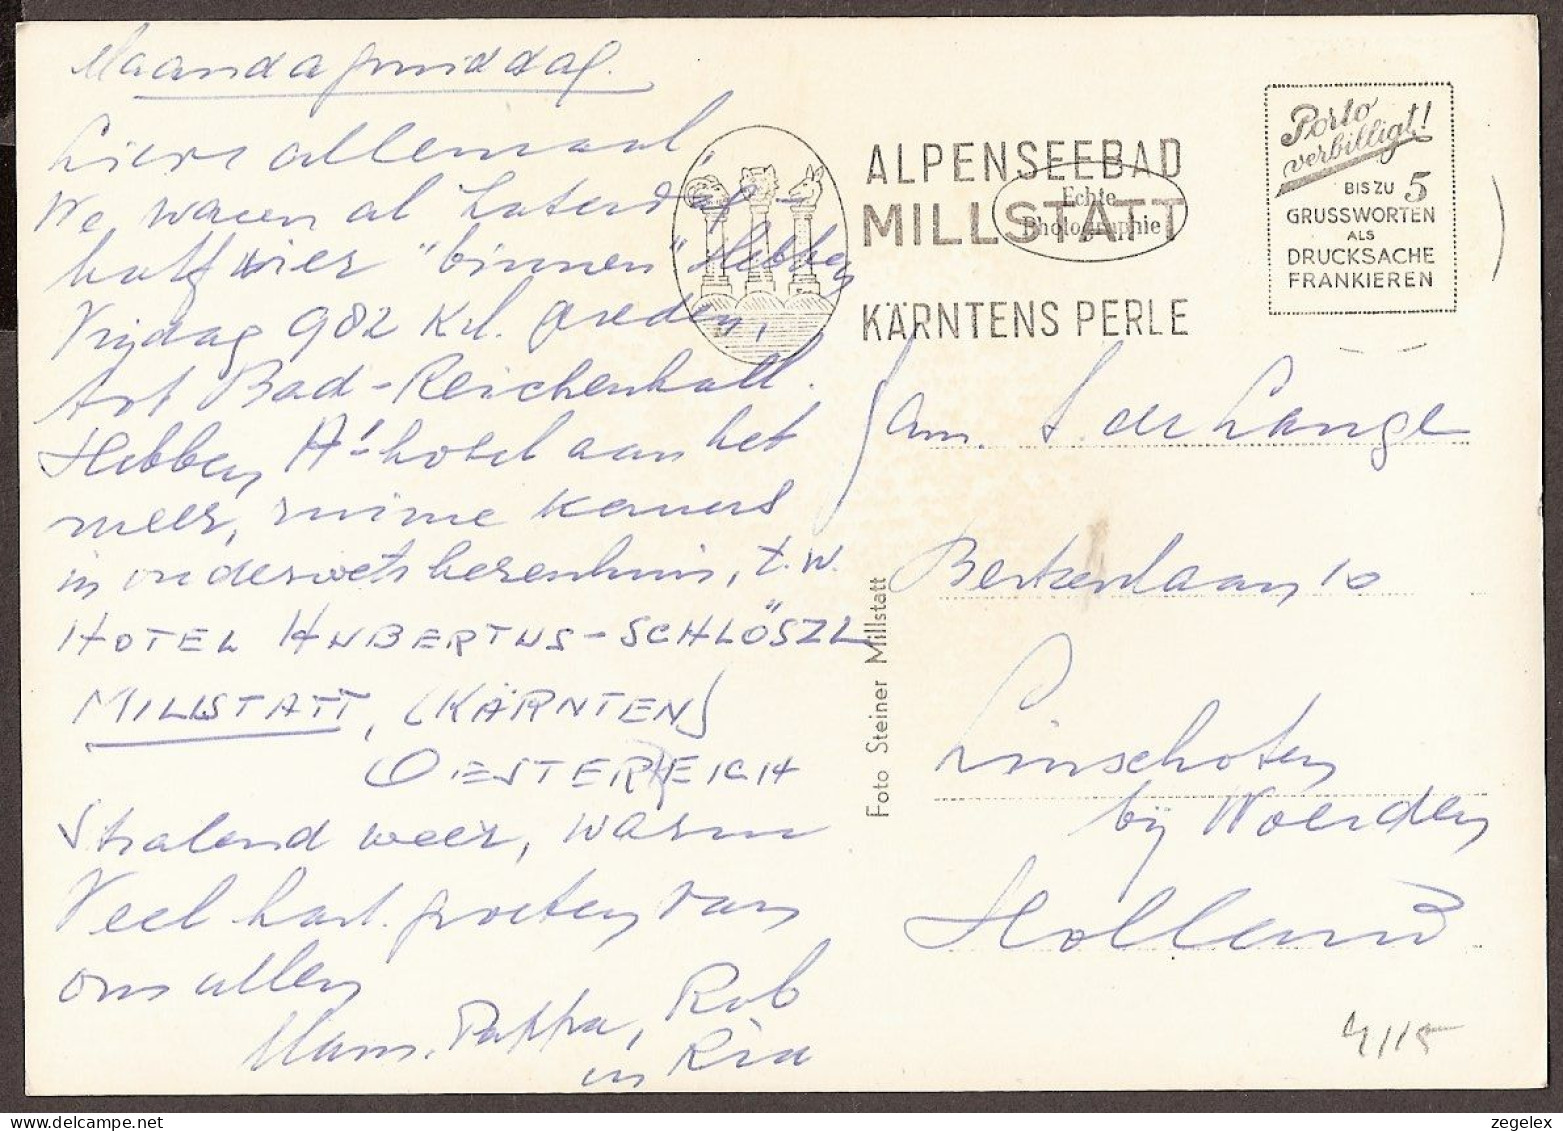 Maandagmiddag.
Lieve allemaal,
We waren al Zaterdag
half vier "binnen" Hebben
Vrijdag 982 km. gereden,
tot Bad-Reichenhall.
Hebben A1 hotel aan het
meer, ruime kamers
in onderwetsherenhuis, t.w.
HOTEL HUBERTUS-SCHLÖSZL
MILLSTATT, (KÄRNTEN)
OESTERREICH
Stralend weer, warm
Veel hart. groeten van
ons allen
Mam, Pappa, Rob
en Ria
ALPENSEEBAD
MILLSTATT
KÄRNTENS PERLE
Echte
Photographie
Porto
verbilligt!
BIS ZU 5
GRUSSWORTEN
ALS
DRUCKSACHE
FRANKIEREN
Fam. de Lange
Berkenlaan 10
Linschoten
bij Woerden
Holland
Foto Steiner Millstatt
zegelex